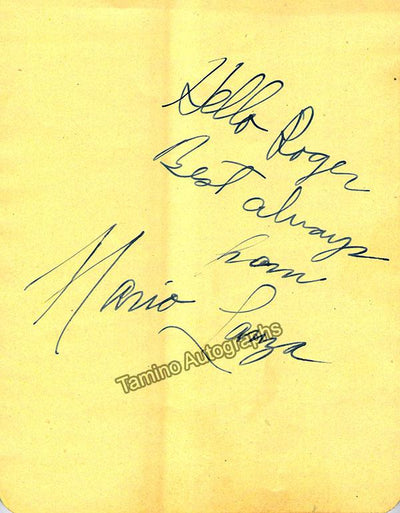 Hello Roger
Best always
from
Mario Lanza
Tamino Autographs